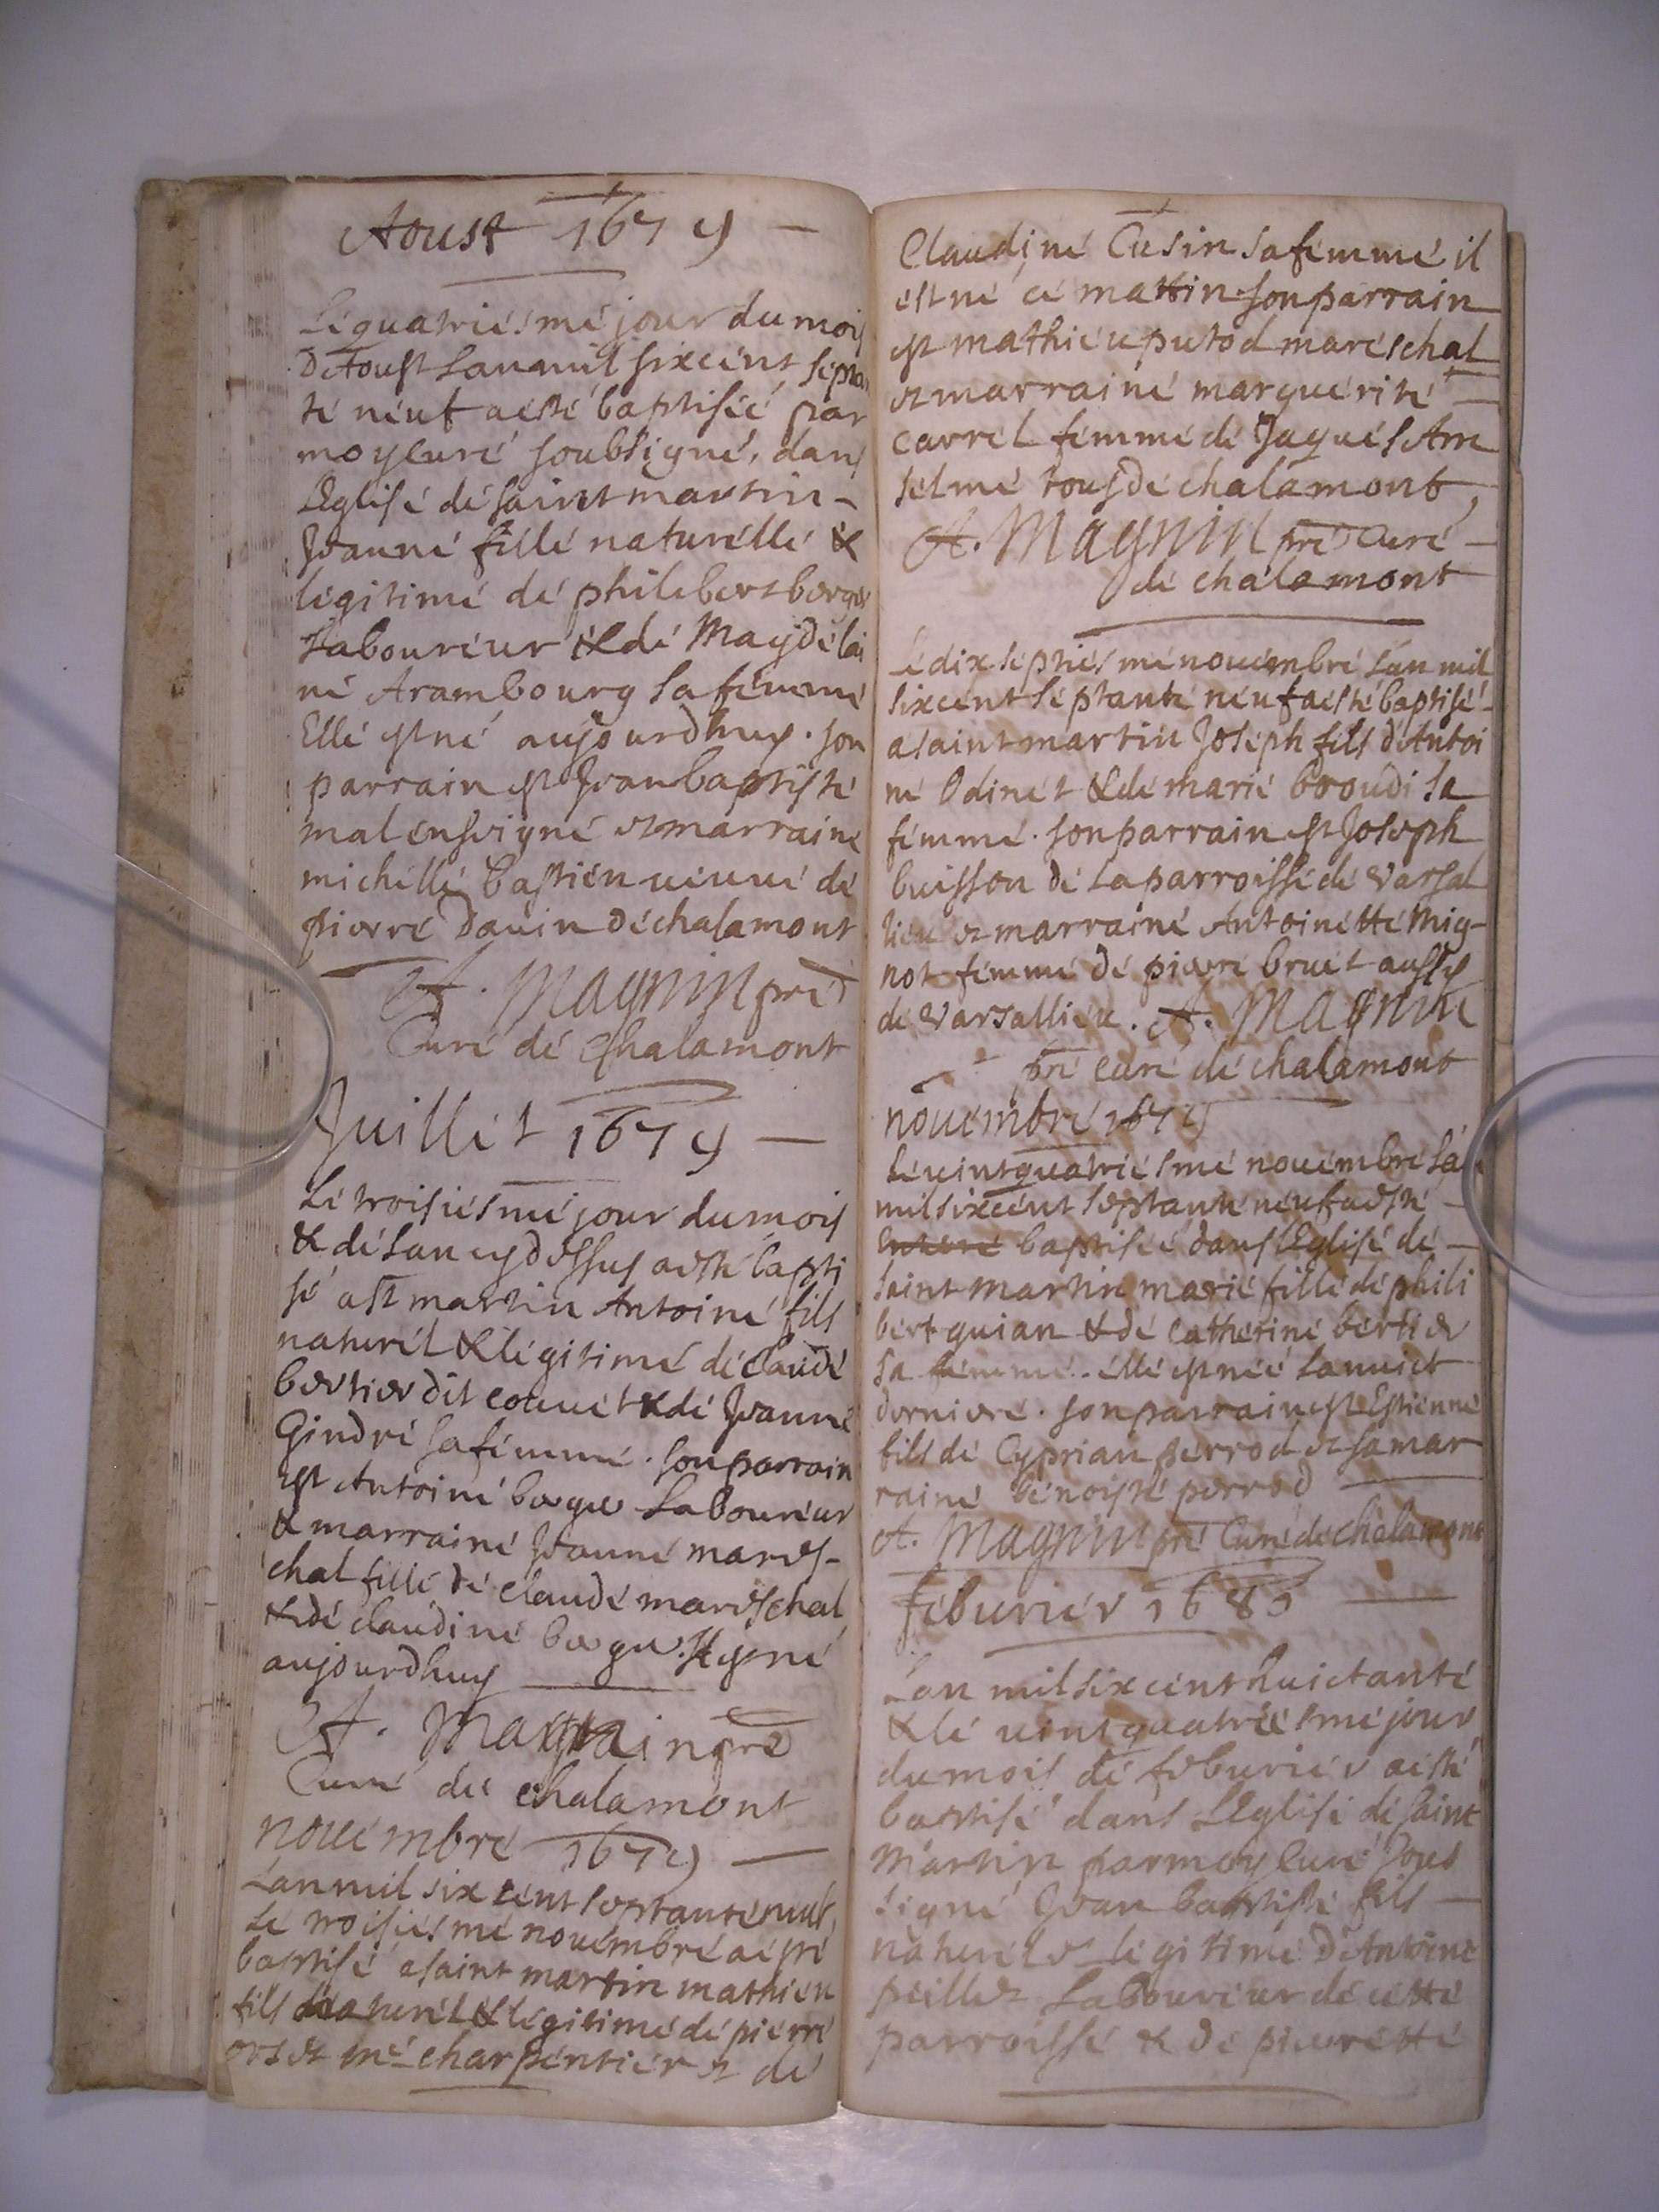 Aoust 1679 —
Le quatriesme jour du mois
D'Aoust L'an mil six cent septan
te neuf a esté baptiséé par
moy curé soubsigné, dans
L'Eglise de saint martin —
Jeanne fille naturelle &
legitime de philebert berger
Laboureur & de Magdelai
ne Arambourg sa femme
Elle est né aujourdhuy. son
parrain est Jean baptiste
malenseigne et marraine
michelle bastien veuve de
pierre Dauin de chalamont
A. Magnin pre
Curé de Chalamont
Juillet 1679 —
Le troisiesme jour du mois
& de L'an cy dessus a esté bapti
sé a st martin Antoine fils
naturel & legitime de claude
bertier dit couuet & de Jeanne
Gindre sa femme. son parrain
est Antoine berger Laboureur
& marraine Jeanne mares-
chal fille de claude mareschal
& de claudine berger. Il est né
aujourdhuy
A. Magnin pre
Curé de chalamont
nouembre 1679 —
L'an mil six cent septante neuf,
Le troisiesme nouembre a esté
baptisé a saint martin mathieu
fils naturel & legitime de pierre
orset me charpentier et de
Claudine Cusin sa femme il
est né ce mattin son parrain
est mathieu putod mareschal
et marraine marguerite —
carrel femme de Jaques Am
selme tous de chalamont,
A. Magnin pre Curé —
de chalamont
Le dix septiesme nouembre L'an mil
six cent septante neuf a esté baptisé —
a saint martin Joseph fils d'Antoi
ne Odinet & de marie broudi sa
femme. son parrain est Joseph
buisson de La parroisse de Varsal
lieu et marraine Antoinette Mig-
not femme de pierre bruet aussy
de Varsallieu. A. Magnin
pre curé de chalamont
nouembre 1679
Le uint quatriesme nouembre L'an
mil six cent septante neuf a esté —
baptiséé dans L'Eglise de —
saint martin marie fille de phili
bert guian & de catherine bertier
sa femme. elle est néé La nuict
derniere. son parrain est Estienne
fils de Cyprian perrod et sa mar
raine benoiste perrod —
A. Magnin pre Curé de chalamont
feburier 1680 —
L'an mil six cent huictante
& le uint quatriesme jour
du mois de feburier a esté
baptisé dans L'Eglise de saint
Martin par moy curé sous
signé Jean baptiste fils —
naturel et legitime d'Antoine
peillet Laboureur de cette
parroisse & de pierrette